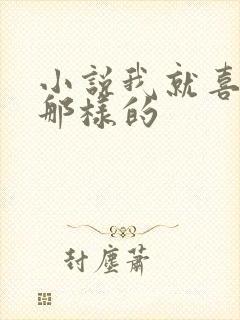 小說我就喜
那樣的
封塵蕭